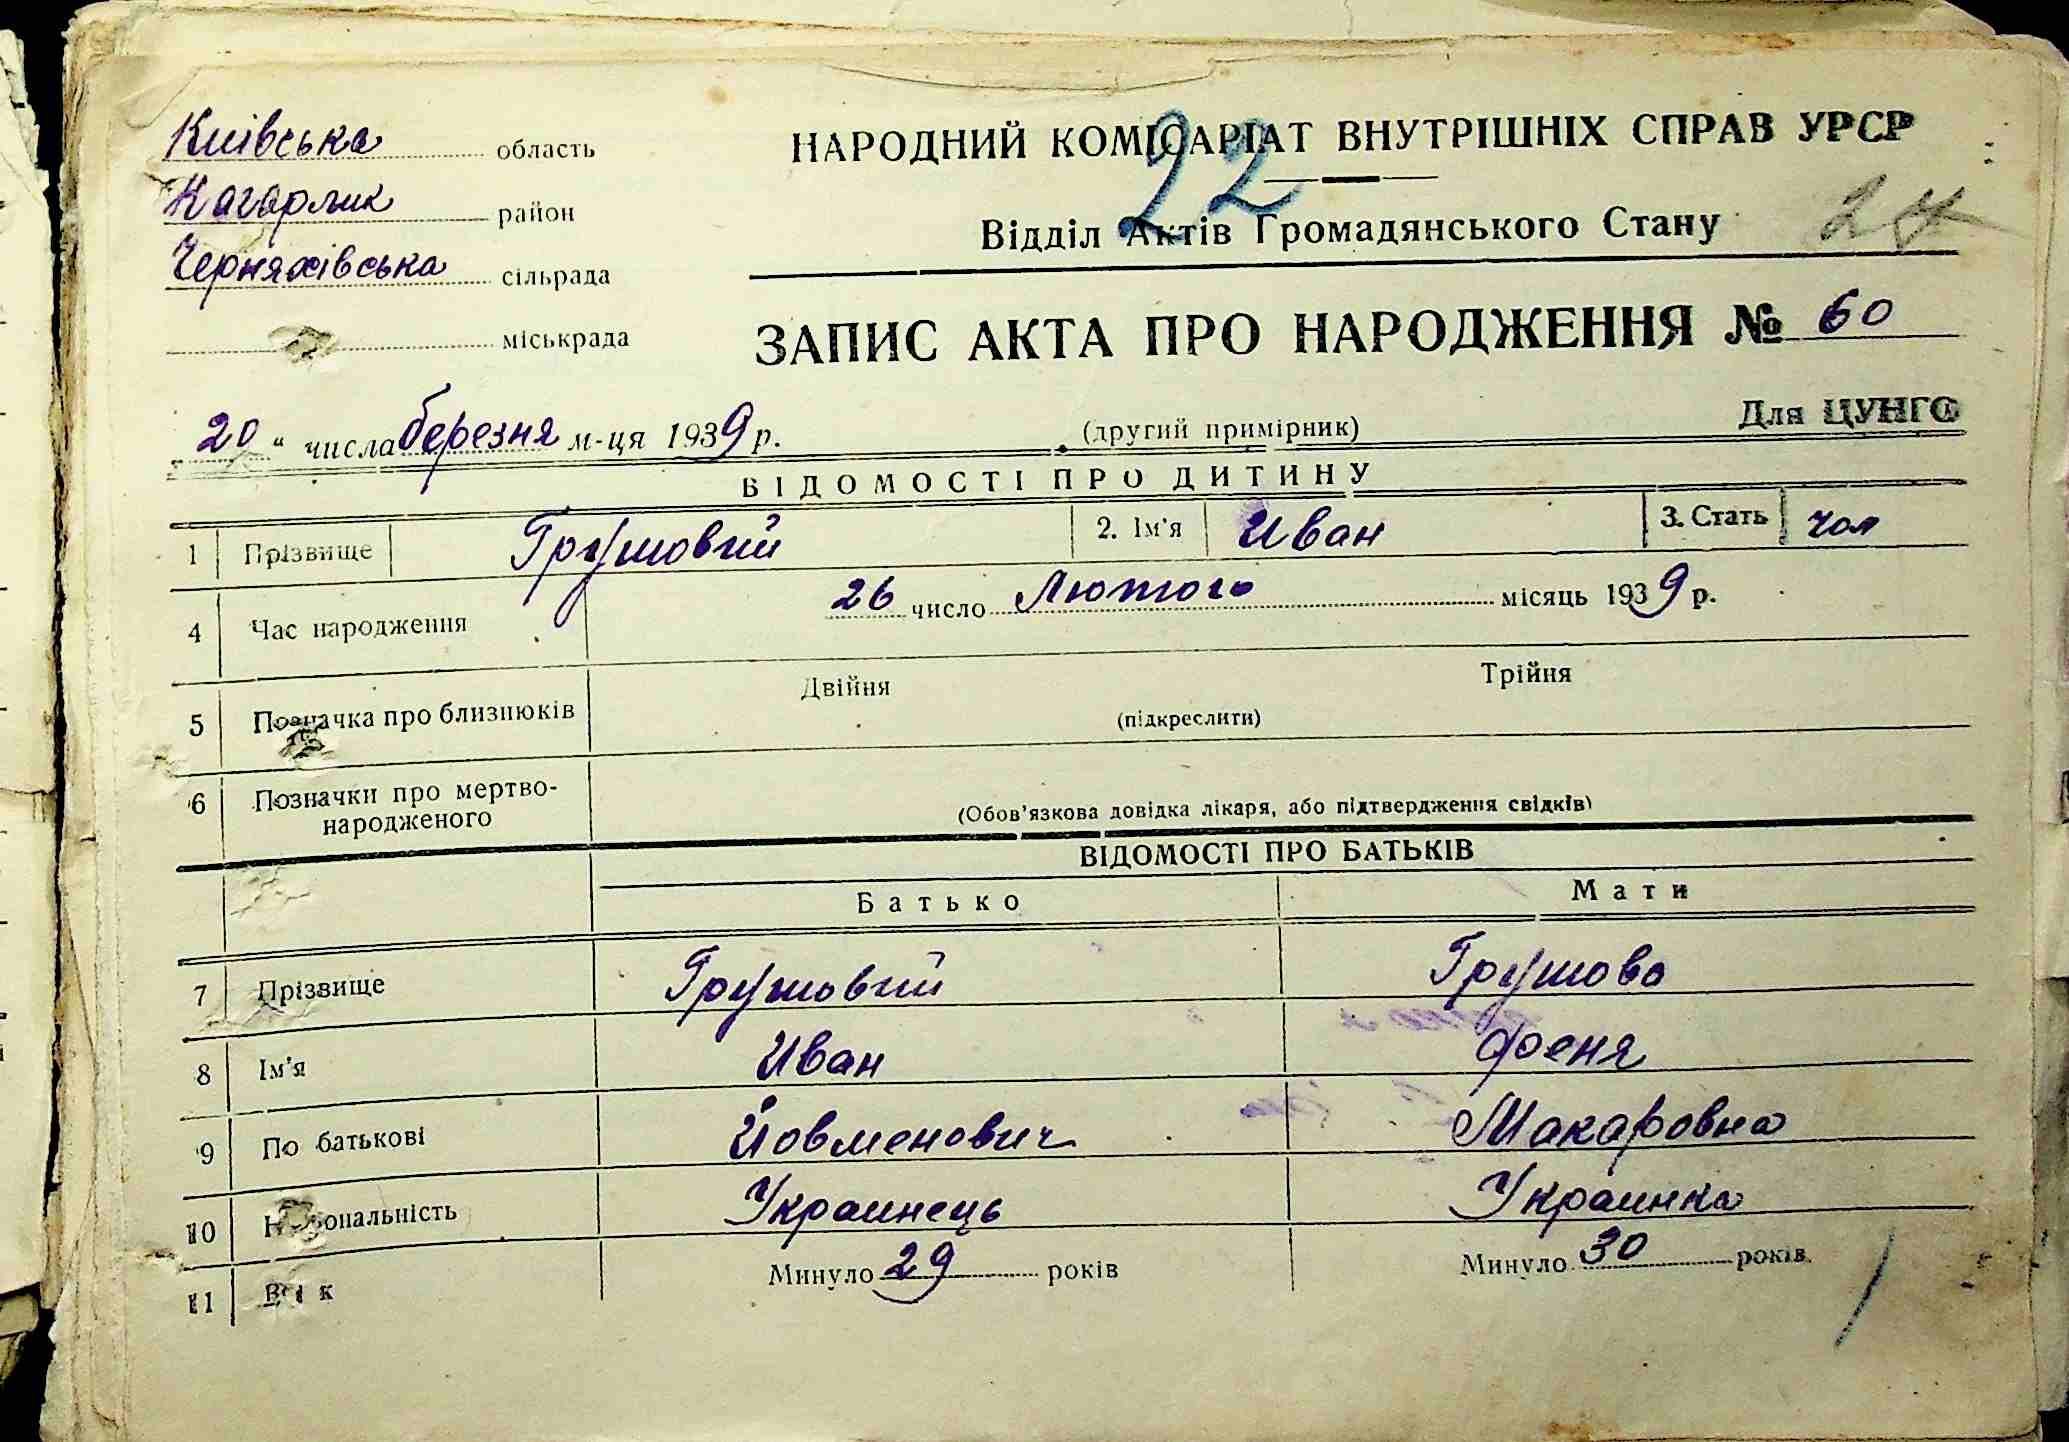 Київська область
Кагарлик район
Черняхівська сільрада
міськрада
НАРОДНИЙ КОМІСАРІАТ ВНУТРІШНІХ СПРАВ УРСР
22
Відділ Актів Громадянського Стану
ЗАПИС АКТА ПРО НАРОДЖЕННЯ № 60
20 " числа березня м-ця 1939 р. (другий примірник) Для ЦУНГО
ВІДОМОСТІ ПРО ДИТИНУ
1 Прізвище Грушовий 2. Ім'я Иван 3. Стать чол
4 Час народження 26 число Лютого місяць 1939 р.
5 Позначка про близнюків Двійня Трійня
(підкреслити)
6 Позначки про мертво-
народженого (Обов'язкова довідка лікаря, або підтвердження свідків)
ВІДОМОСТІ ПРО БАТЬКІВ
Батько Мати
7 Прізвище Грушовий Грушова
8 Ім'я Иван Феня
9 По батькові Йовменович Макаровна
10 Національність Украинець Украинка
11 Вік Минуло 29 років Минуло 30 років